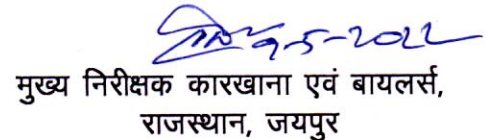 9-5-2022
मुख्य निरीक्षक कारखाना एवं बायलर्स,
राजस्थान, जयपुर